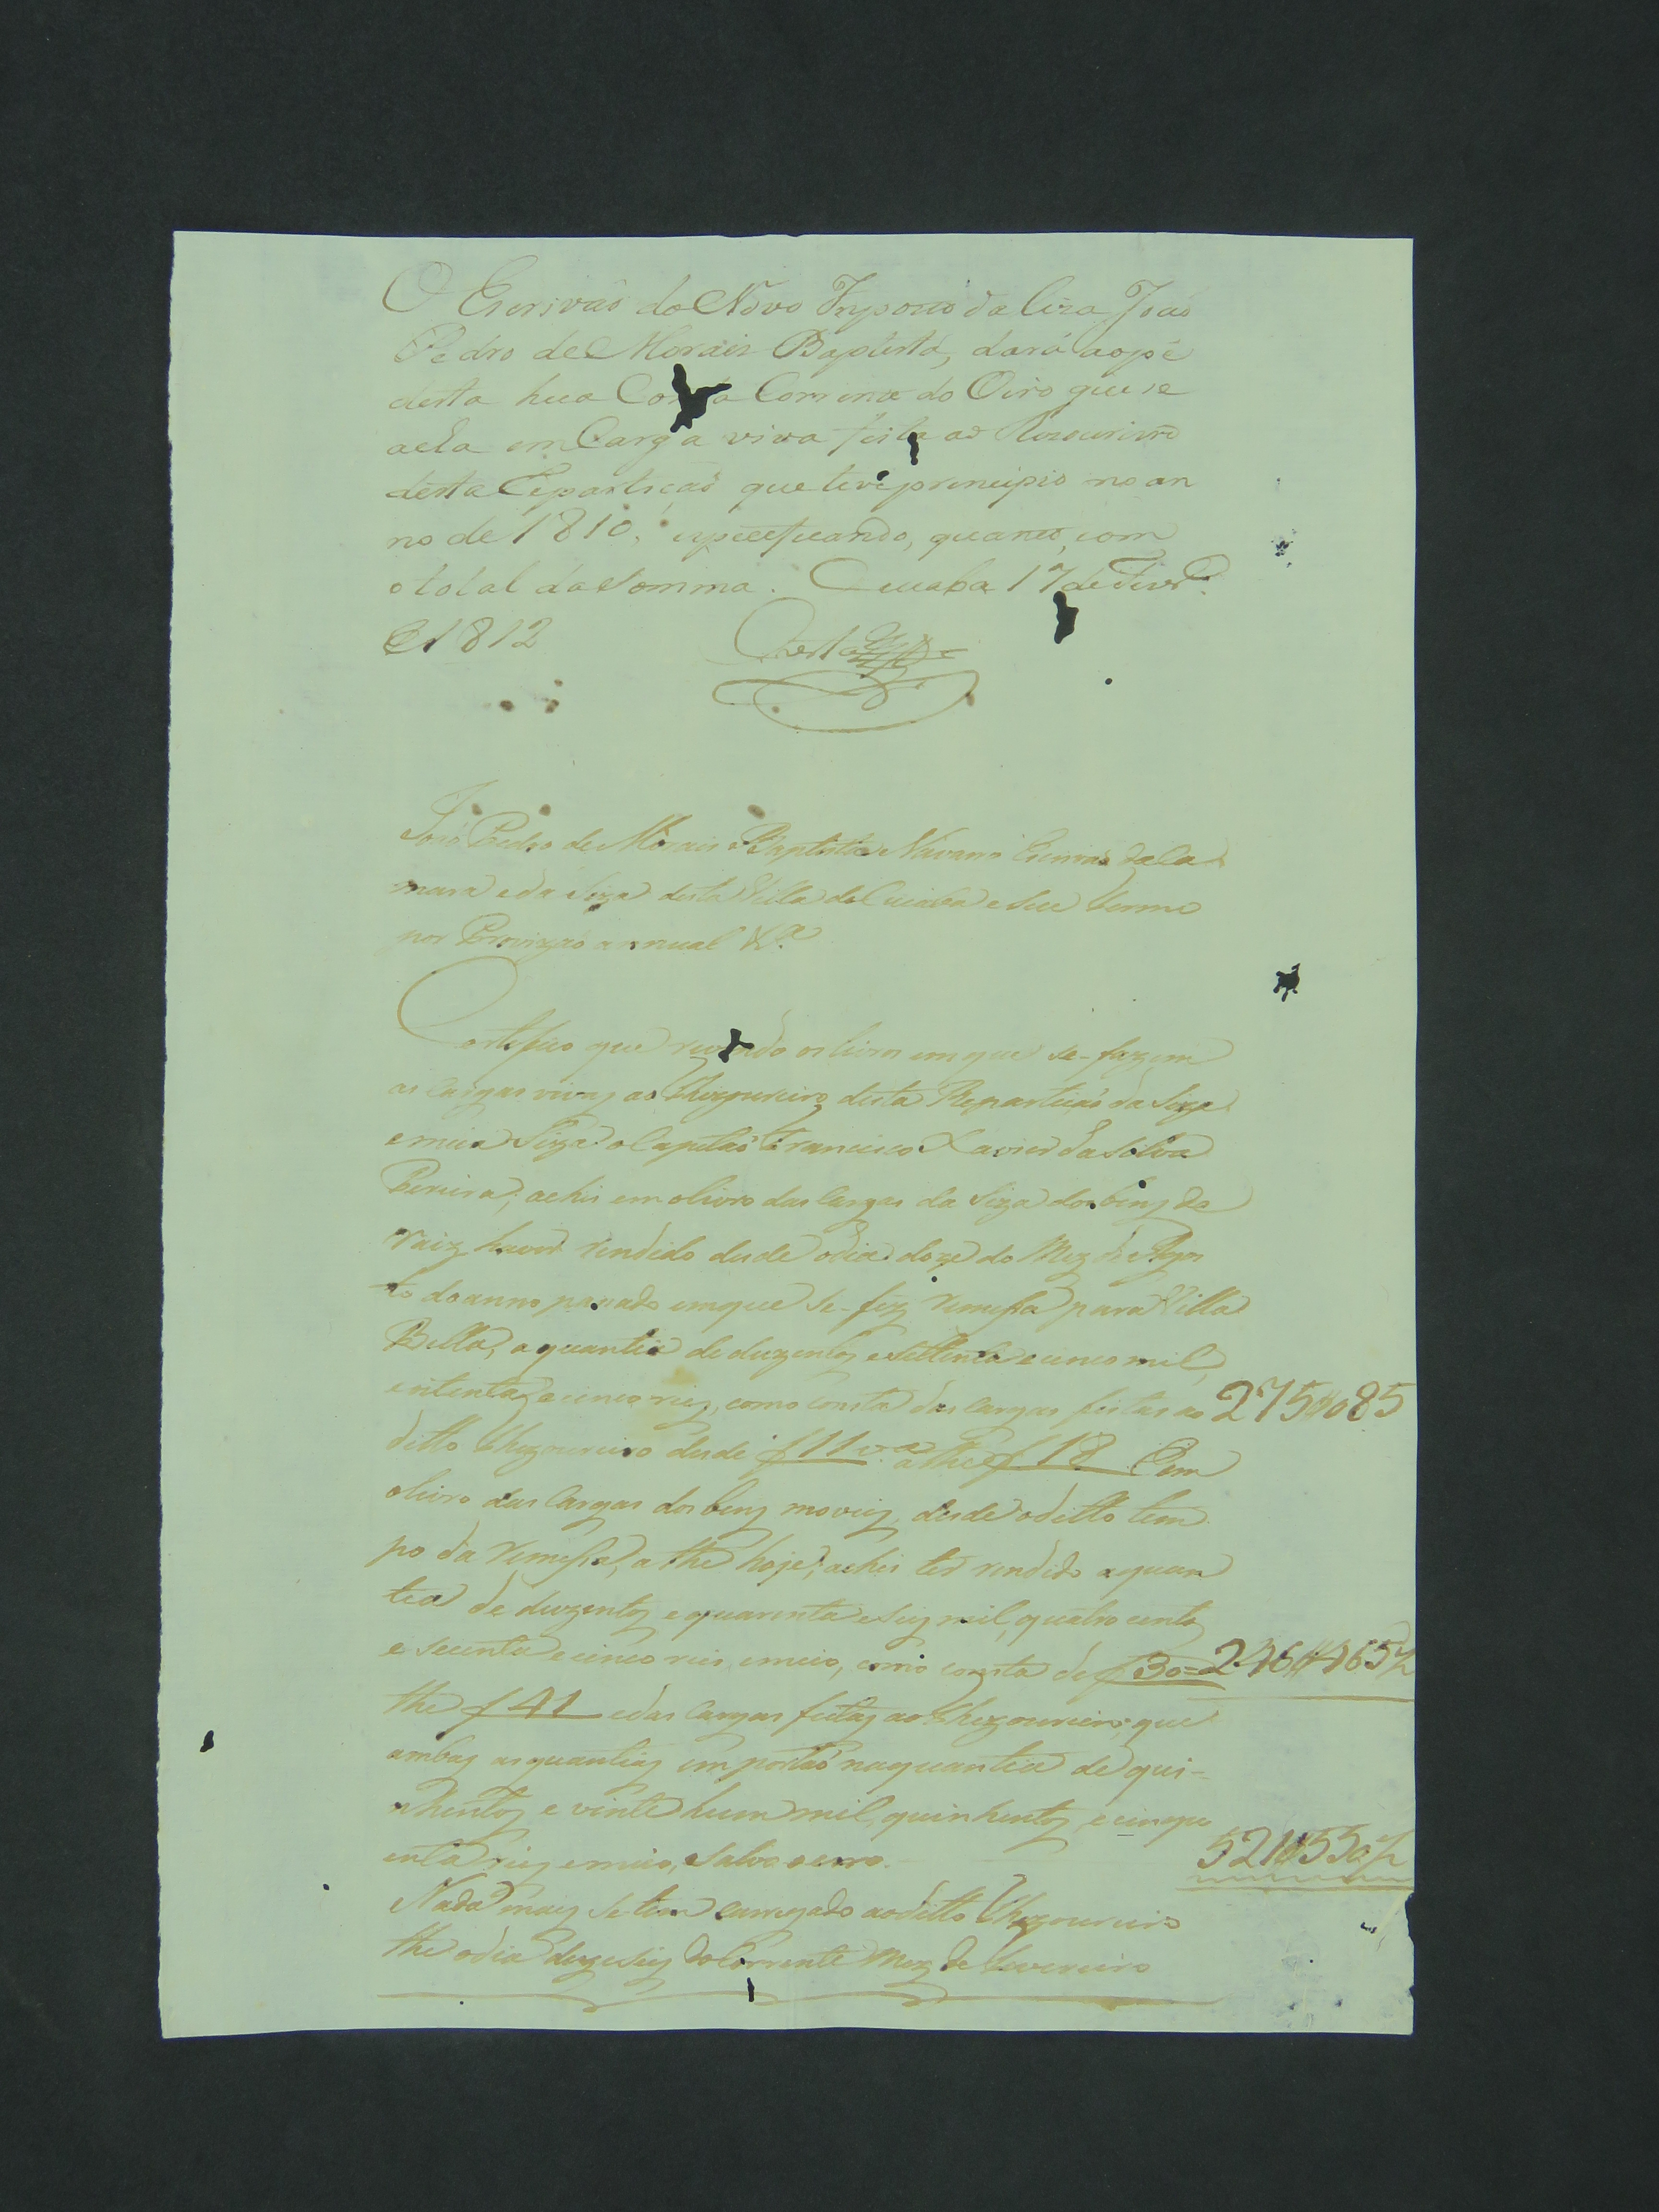 O Escrivaõ do Novo Imposto da Ciza Joaõ
Pedro de Morais Baptista, dará ao pé
desta hua Conta Corrente do Oiro que se
acha em Carga viva feita ao Tizoureiro
desta Repartiçaõ que teve principio no an
no de 1810, especificando, quanto, com
o total da Somma. Cuiaba 17 de Fever.º
de 1812
Joaõ Pedro de Morais Baptista Navarro Escrivaõ da Ca
mara e da Siza desta Villa do Cuiaba e Seu termo
por Provizaõ annual &.ª
Certefico que revendo os livros em que se-fazem
as Cargas vivas ao Thezoureiro desta Repartiçaõ da Siza
e meia Siza o Capitaõ Francisco Xavier da Silva
Pereira; achei em o livro das Cargas da Siza dos beñz de
raiz haver rendido desde o dia doze do Mez de Agos
to do anno passado em que se-fez remessa para Villa
Bella, a quantia de duzentos e settenta e cinco mil,
e oitenta e cinco reis, como consta das Cargas feitas ao 275//085
ditto Thezoureiro desde f 11 v.ª athe f 18. E em
o livro das Cargas dos beñz moveis, desde o ditto tem
po da remessa, athe hoje, achei ter rendido a quan
tia de duzentos e quarenta e seis mil, quatro centos
e secenta e cinco reis e meio, como consta de f 30= 246//465½
the f 41 e das Cargas feitas ao Thezoureiro, que
ambas as quantias importaõ na quantia de qui-
nhentos e vinte hum mil, quinhentos e cinqu
enta reis e meio, salvo o erro. 521//550½
Nada mais se tem carregado ao ditto Thezoureiro
the o dia dezeseis do Corrente Mez de Fevereiro